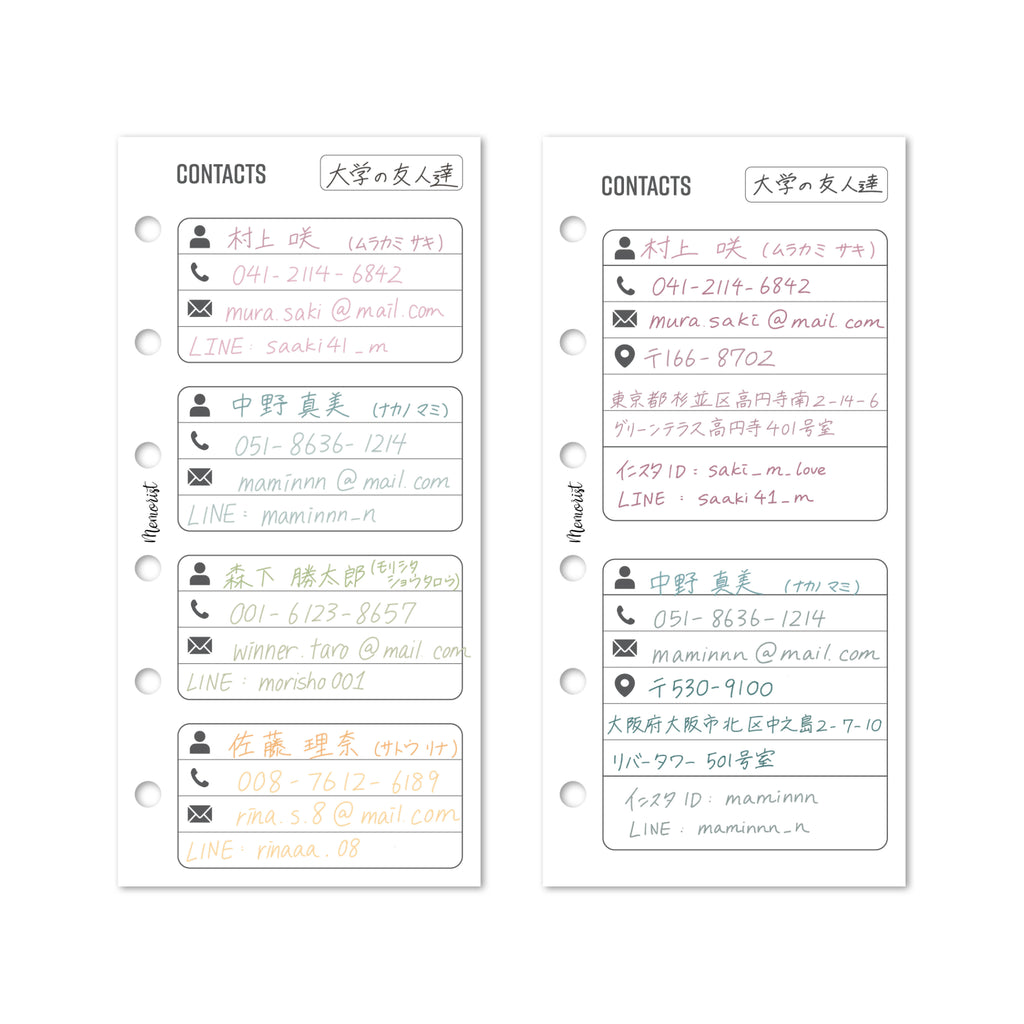 CONTACTS
大学の友人達
村上 咲 (ムラカミ サキ)
041-2114-6842
mura.saki@mail.com
LINE: saaki41_m
中野 真美 (ナカノ マミ)
051-8636-1214
maminnn@mail.com
LINE: maminnn_n
森下 勝太郎 (モリシタ ショウタロウ)
001-6123-8657
winner.taro@mail com
LINE: morisho001
佐藤 理奈 (サトウ リナ)
008-7612-6189
rina.s.8@mail.com
LINE: rinaaa.08
Memorist
CONTACTS
大学の友人達
村上 咲 (ムラカミ サキ)
041-2114-6842
mura.saki@mail.com
〒166-8702
東京都杉並区高円寺南2-14-6
グリーンテラス高円寺401号室
インスタID: saki_m_love
LINE : saaki41_m
中野 真美 (ナカノ マミ)
051-8636-1214
maminnn@mail.com
〒530-9100
大阪府大阪市北区中之島2-7-10
リバータワー 501号室
インスタID: maminnn
LINE : maminnn_n
Memorist